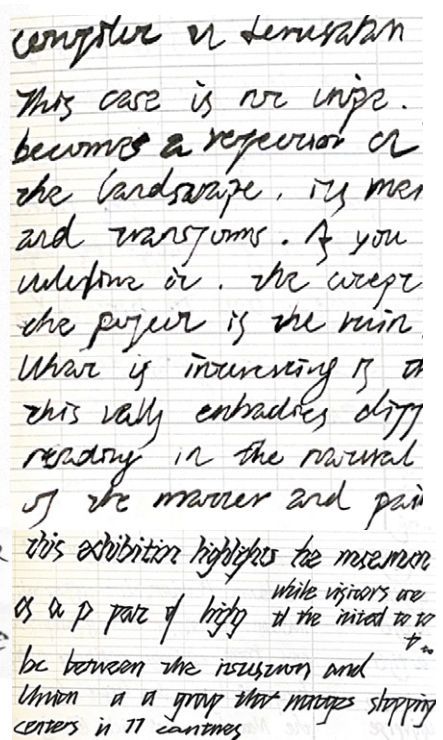 compiler in Jerusalem
This case is not unique.
becomes a rejection of
the landscape. its mer
and transforms. If you
the
the project is the ruin
What is interesting is th
this vally embodies diff
reading in the natural
of the matter and pai
this exhibition highlights the museum
as a p part of highy
while visitors are
the invited to to
to
be between the museum and
Union a a group that manages shopping
centers in 11 countries